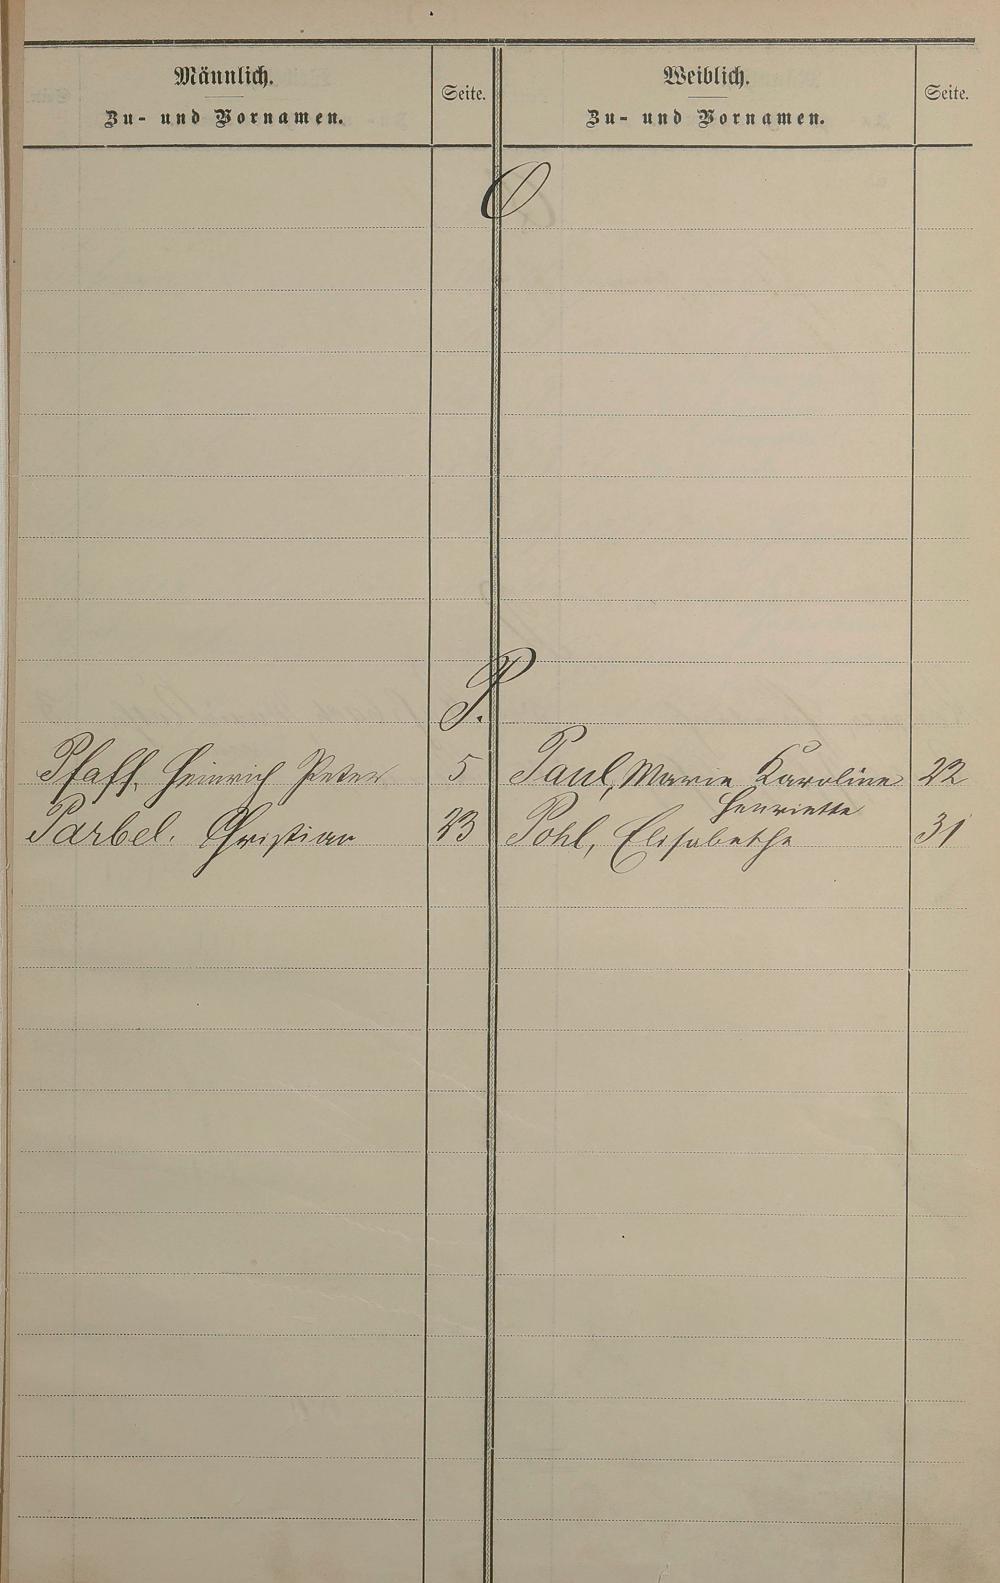 Männlich.
Zu- und Vornamen.
Seite.
Weiblich.
Zu- und Vornamen.
Seite.
O
P.
Pfaff, Heinrich Peter 5
Paul, Marie Karoline 22
Henriette
Parbel. Christian 23
Pohl, Elisabethe 31